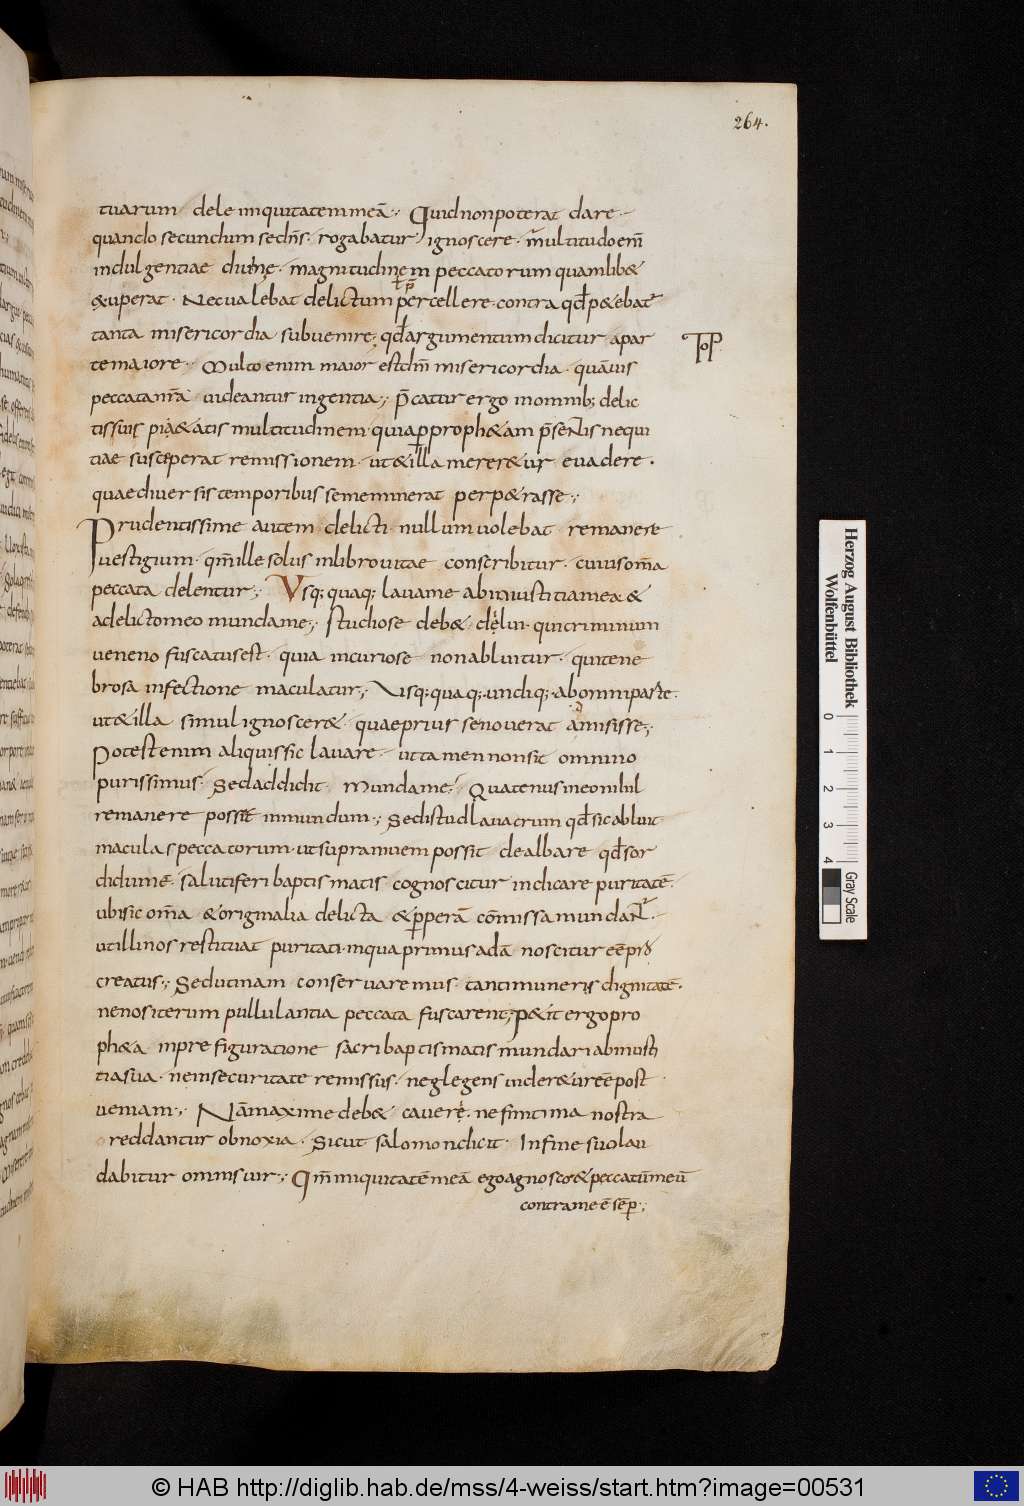 264.
tuarum dele iniquitatem meā; Quid non poterat dare
quando secundum se dn̄s rogabatur ignoscere multitudo enī
indulgentiae diuine magnitudinem peccatorum quamlib&
&uperat. Nec ualebat delictum percellere contra qđ p&ebat
tanta misericordia subuenire; qđ argumentum dicitur a par
te maiore. Multo enim maior est dn̄i misericordia quāuis
TOP
peccata nr̄a uideantur ingentia; p̄catur ergo in omnib; delic
tis suis pi&atis multitudinem quia ꝑ proph&am p̄sentis nequi
tiae susceperat remissionem ut & illa merer&ur euadere.
quae diuersis temporibus se meminerat perp&rasse;
Prudentissime autem delicti nullum uolebat remanere
uestigium qm̄ ille solus in libro uitae conscribitur cuius om̄a
peccata delentur; Vsq; quaq; laua me ab iniustitia mea &
a delicto meo munda me; studiose deb& dęlui qui criminum
ueneno fuscatus est quia incuriose non abluitur qui tene
brosa infectione maculatur; Vsq; quaq; undiq; ab omni parte.
ut & illa simul ignoscer& quae prius se nouerat ammisisse;
Potest enim aliquis sic lauare ut tamen non sit omnino
purissimus. Sed addidit Munda me; Quatenus in eo nihil
remanere possit inmundum; Sed istud lauacrum qđ sic abluit
maculas peccatorum ut supra niuem possit dealbare qđ sor
didum ē saluti feri baptismatis cognoscitur indicare puritatē.
ubi sic om̄a & originalia delicta & ꝑperā cōmissa mundant
ut illi nos restituat puritati in qua primus adā noscitur eē
creatus; Sed utinam conseruaremus tanti muneris dignitatē.
ne nos iterum pullulantia peccata fuscarent; p&it ergo pro
ph&a in prefiguratione sacri baptismatis mundari ab iniusti
tia sua ne in securitate remissus neglegens uider&ur eē post
ueniam; Nā maxime deb& cauere ne finitima nostra
reddantur obnoxia. Sicut salomon dicit In fine suo lau
dabitur omnis uir; Qm̄ iniquitatē meā ego agnosco & peccatū meū
contra me ē sēꝑ;
Herzog August Bibliothek
Wolfenbüttel
0 1 2 3 4
Gray Scale
© HAB http://diglib.hab.de/mss/4-weiss/start.htm?image=00531